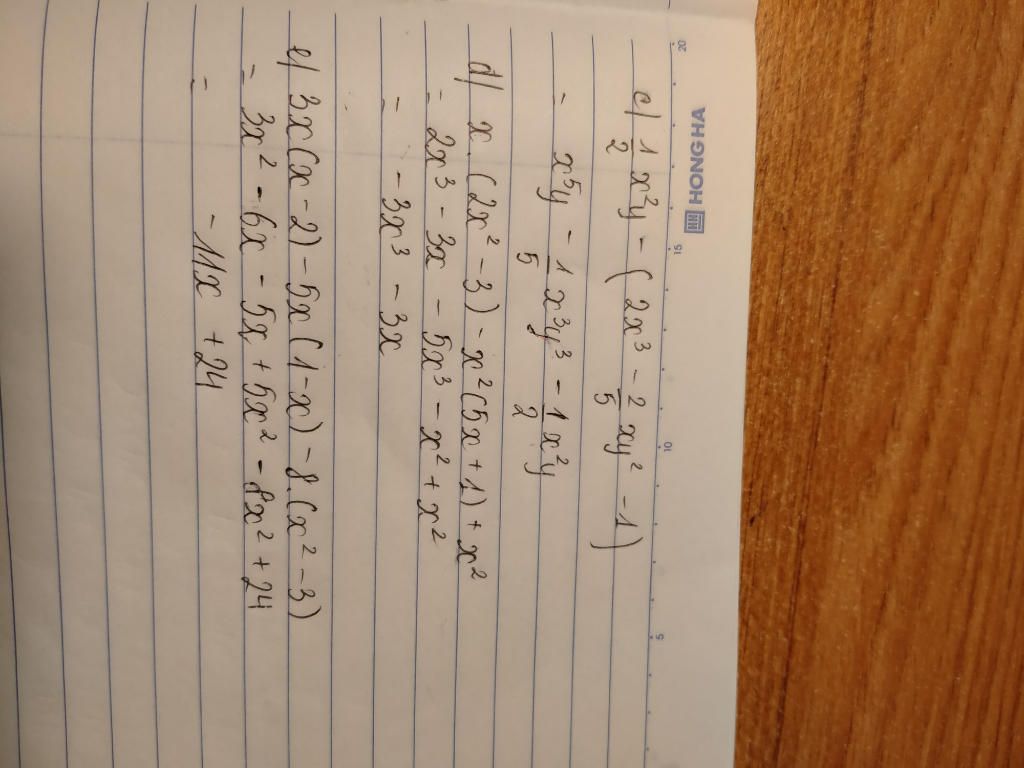 HONGHA
20 15 10 5
c) 1/2 x²y - ( 2x³ - 2/5 xy² - 1)
= x⁵y - 1/5 x³y³ - 1/2 x²y
d) x.(2x² - 3) - x²(5x + 1) + x²
= 2x³ - 3x - 5x³ - x² + x²
= - 3x³ - 3x
e) 3x(x - 2) - 5x(1 - x) - 8.(x² - 3)
= 3x² - 6x - 5x + 5x² - 8x² + 24
= - 11x + 24